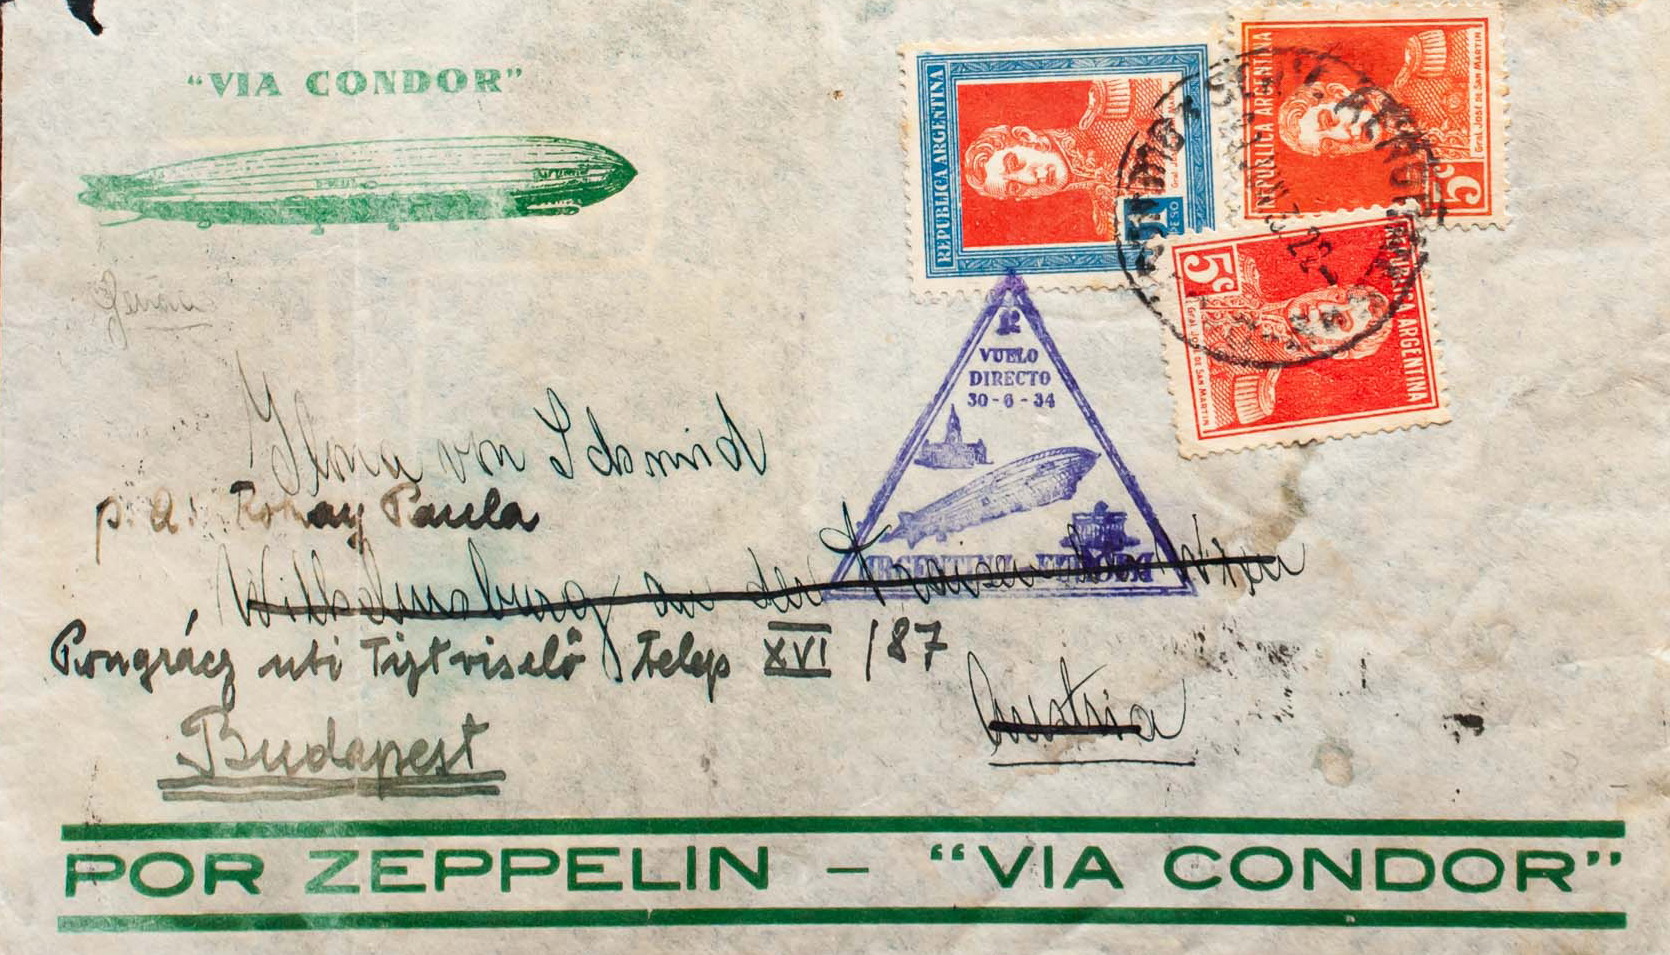 “VIA CONDOR”
REPUBLICA ARGENTINA
PESO
REPUBLICA ARGENTINA
Gral. JOSÉ DE SAN MARTIN
5c
5c
REPUBLICA ARGENTINA
Gral. JOSÉ DE SAN MARTIN
VUELO
DIRECTO
30-6-34
ARGENTINA - EUROPA
Ilma von Schmid
p. a. Rónay Paula
Wilhelmsburg an der Traisen bei Wien
Pongrácz uti Tisztviselő telep XVI /87
Austria
Budapest
POR ZEPPELIN – “VIA CONDOR”